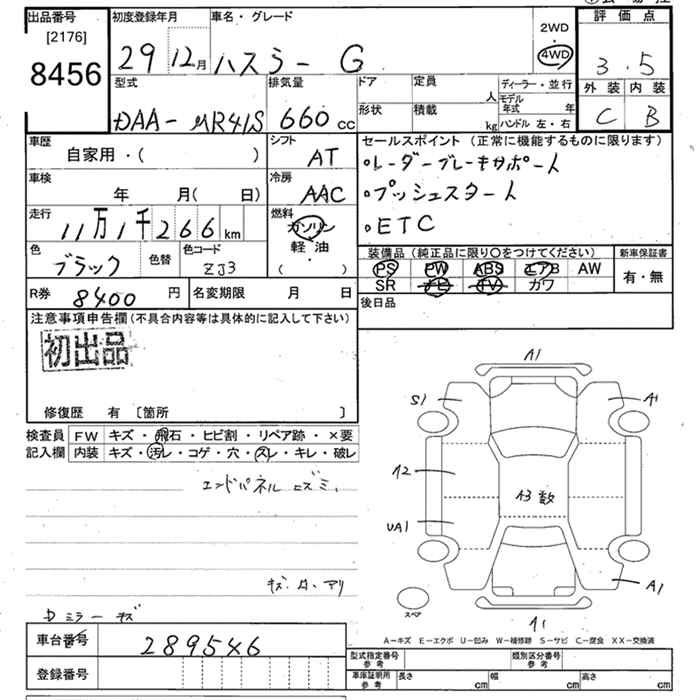 出品番号
[2176]
8456
初度登録年月
29 12月
車名・グレード
ハスラー G
2WD
4WD
評価点
3.5
外装 内装
C B
型式
DAA-MR41S
排気量
660 cc
ドア
形状
定員
人
積載
kg
ディーラー・並行
モデル年式 年
ハンドル 左・右
車歴
自家用・( )
シフト
AT
セールスポイント (正常に機能するものに限ります)
・レーダーブレーキサポート
・プッシュスタート
・ETC
車検
年 月( 日)
冷房
AAC
走行
11万1千266km
燃料
ガソリン
軽・油
( )
色
ブラック
色替
色コード
ZJ3
装備品 (純正品に限り〇をつけてください)
PS PW ABS エアB AW
SR ナビ TV カワ
新車保証書
有・無
R券
8400 円
名変期限 月 日
後日品
注意事項申告欄 (不具合内容等は具体的に記入して下さい)
初出品
修復歴 有 〔箇所 〕
検査員
記入欄
FW キズ・飛石・ヒビ割・リペア跡・×要
内装 キズ・汚レ・コゲ・穴・スレ・キレ・破レ
エンドパネル ヒズミ.
キズ.凹.アリ
Dミラー キズ
A1
S1
A1
A2
A3 数
UA1
A1
A1
スペア
A-キズ E-エクボ U-凹み W-補修跡 S-サビ C-腐食 XX-交換済
車台番号
289546
登録番号
型式指定番号
参考
類別区分番号
参考
車庫証明用
参考
長さ cm
幅 cm
高さ cm